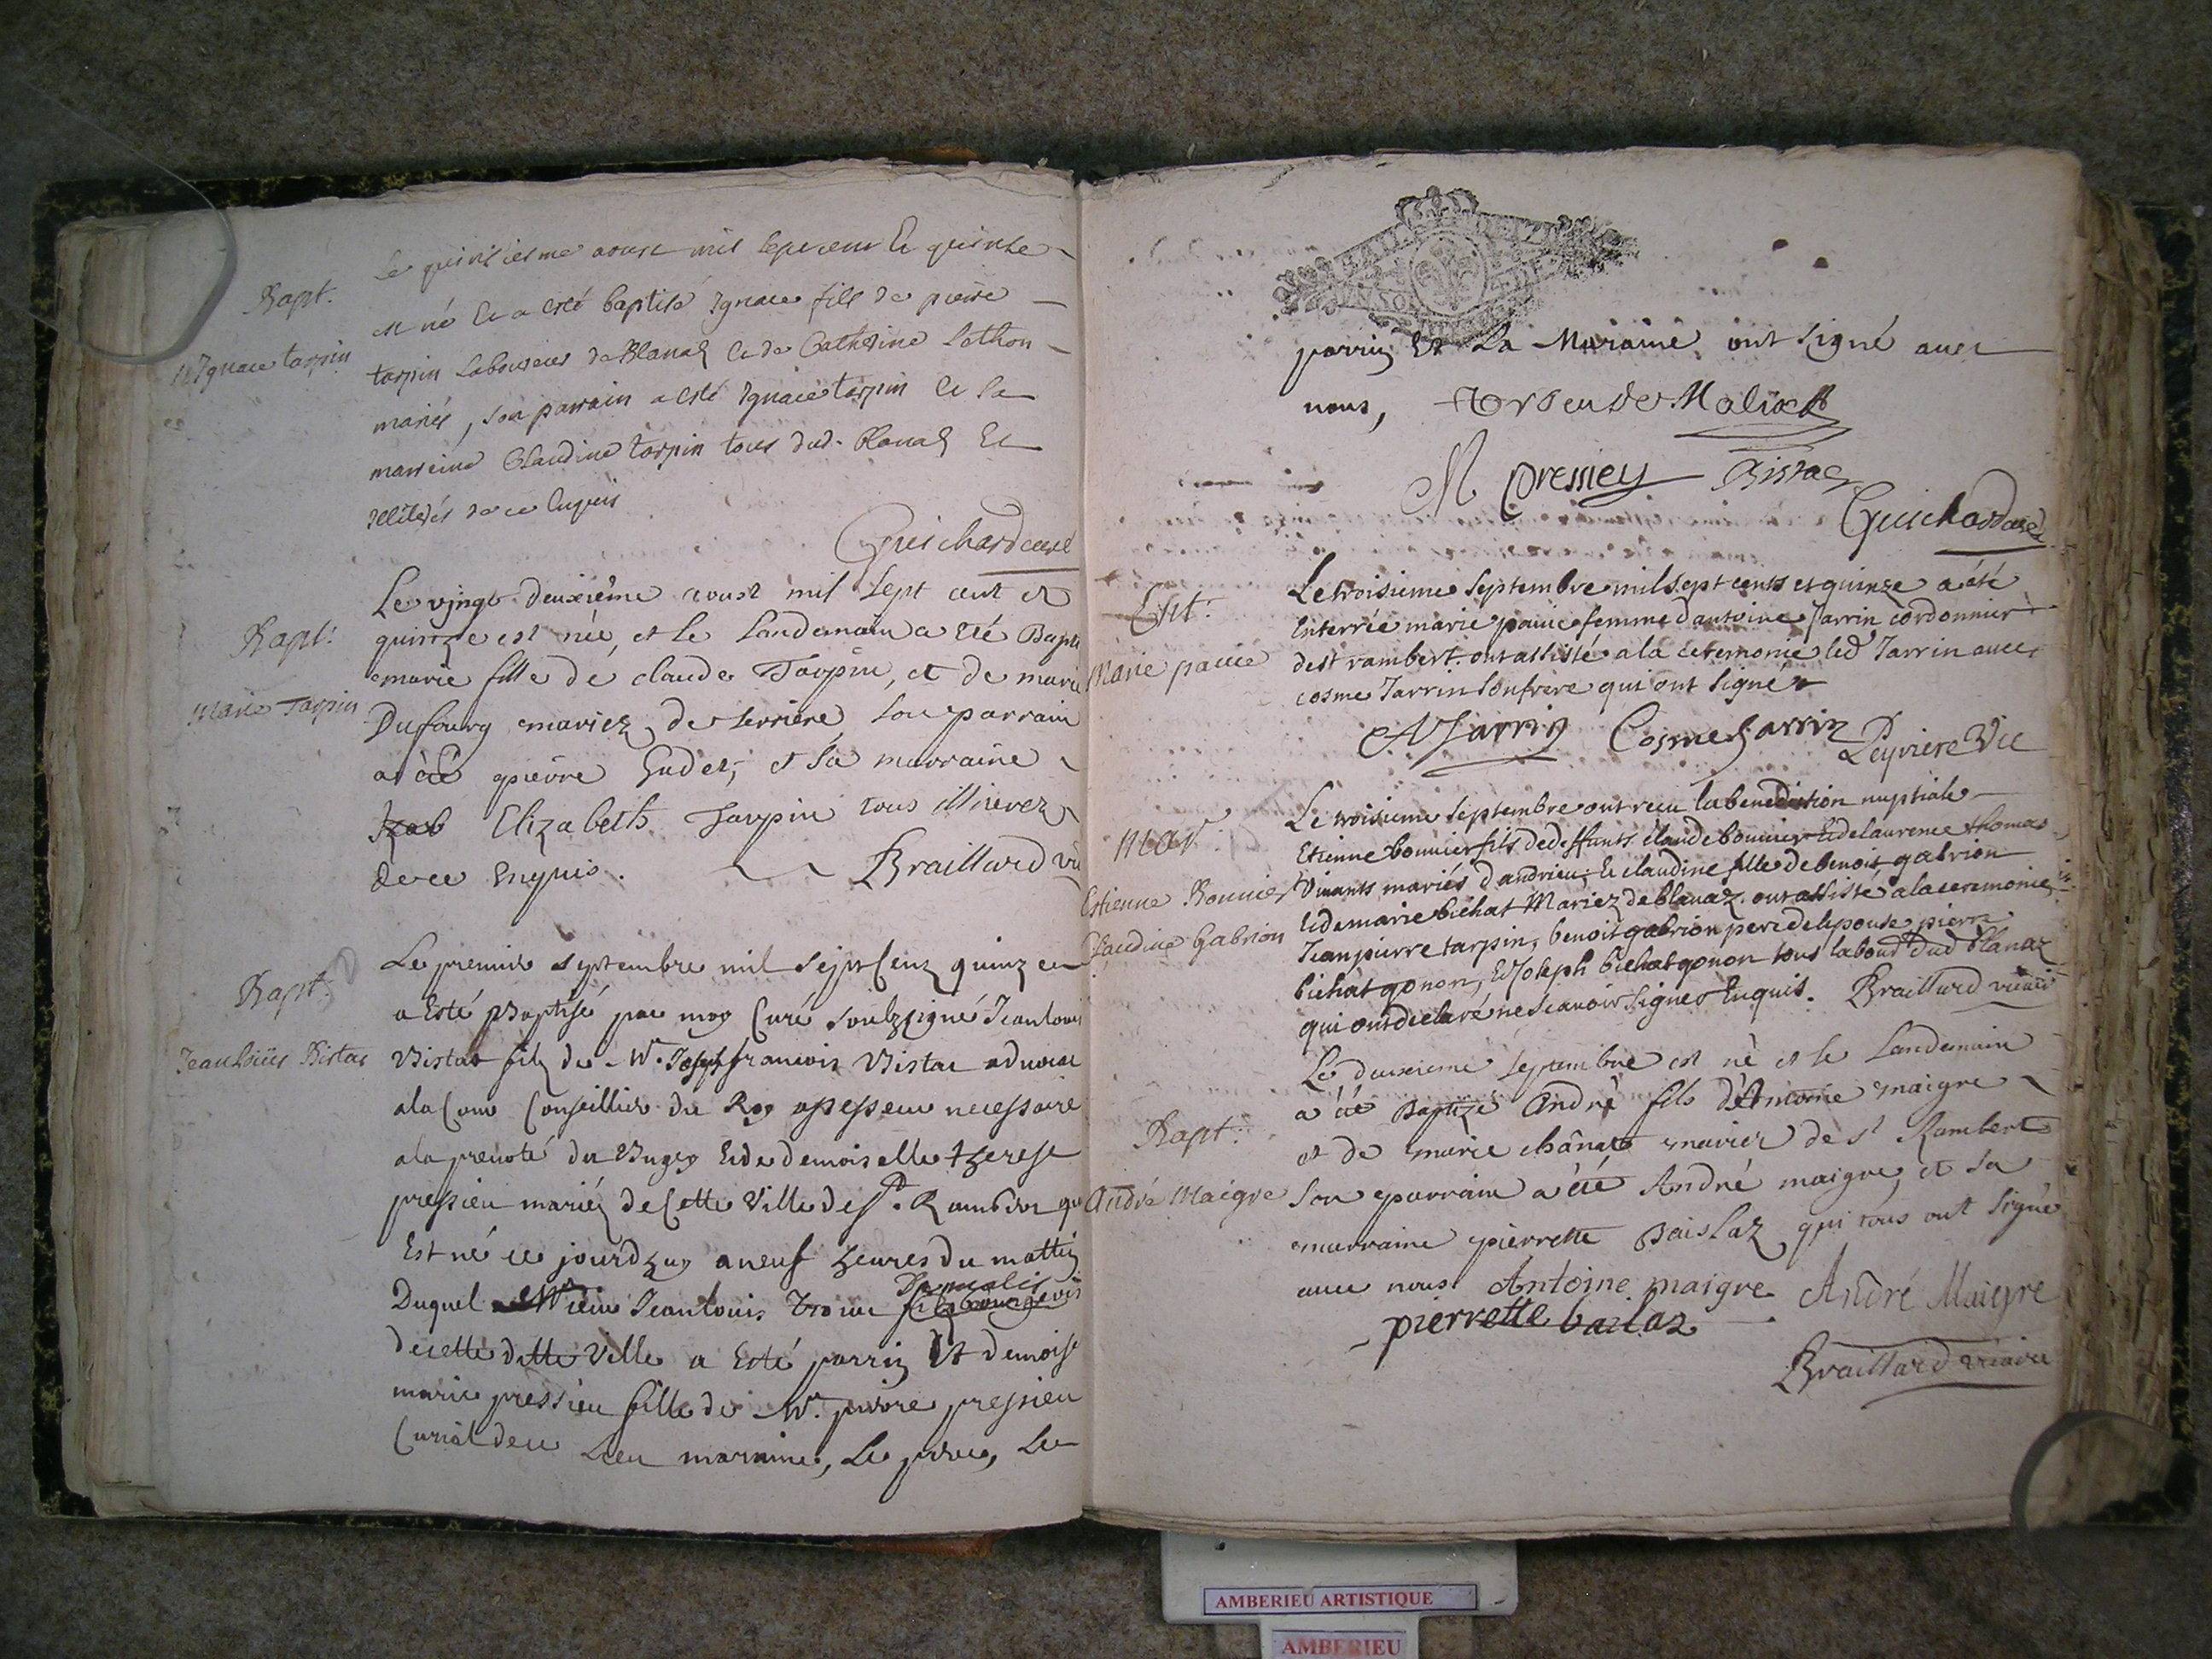 Bapt.
Ignace tarpin
Le quinsiesme aoust mil sept cent et quinse
est né et a esté baptisé Ignace fils de pierre
tarpin laboureur de Blanaz et de Catherine Lathon
mariés, son parrain a esté Ignace tarpin et la
marreine Claudine tarpin tous dud. Blanaz et
illiterés de ce enquis
Guichard curé
Bapt:
Marie Tarpin
Le vingt deuxiême aoust mil sept cent et
quinze est née, et le landemain a été Bapt
marie fille de claude Tarpin, et de marie
Dufourg mariez de serriere, son parrain
a été pierre Gudet, et sa marraine
Elizabeth Tarpin tous illiterez
de ce enquis. Braillard vic
Bapt:
Jean Loüis Bistac
Le premier septembre mil sept cent quinze
a esté Baptisé par moy Curé soubzsigné Jean louis
Bistac filz de Mr. Joseph francois Bistac advocat
a la Cour Conseillier du Roy assesseur necessaire
a la prevoté du Bugey et de demoiselle therese
pressieu mariéz de Cette Ville de st. Rambert qui
Est né ce jourdhuy a neuf heures du mattin
Duquel Jean louis
de cette ditte Ville a esté parrin Et demoise
marie pressieu fille de Mr. pierre pressieu
Curial de ce Lieu marraine, Le pere, Le
parrin Et La Maraine ont signé avec
nous,
M pressieu Bistac
Guichard curé
Ent:
Marie pauie
Le troisieme septembre mil sept cents et quinze a été
Enterrée marie pauie femme d'antoine Jarrin cordonnier
de st rambert. ont assisté a la ceremonie led Jarrin avec
cosme Jarrin son frere qui ont signé
A Jarrin Cosme Jarrin Peyriere Vic
Mar:
Estienne Bonnier
Claudine Gabrion
Le troisieme septembre ont recu la benediction nuptiale
Etienne bonnier fils de deffunts claude bonnier Et de laurence thomas
vivants mariés d'andrieu, Et claudine fille de benoit gabrion
Et de marie bichat Mariez de blanaz. ont assisté a la ceremonie
Jean pierre tarpin, benoit gabrion pere de lepouse, pierre
bichat gonon, Et Joseph bichat gonon tous labourrs dud blanaz
qui ont declaré ne scavoir signer Enquis. Braillard vicaire
Bapt:
André Maigre
Le deuxieme septembre est né et le landemain
a été Baptizé André fils d'Antoine maigre
et de marie chânat mariez de st Rambert
son parrain a été André maigre, et sa
marraine pierrette Baislaz qui tous ont signé
avec nous Antoine maigre André Maigre
pierrette baslaz
Braillard vicaire
AMBERIEU ARTISTIQUE
AMBERIEU